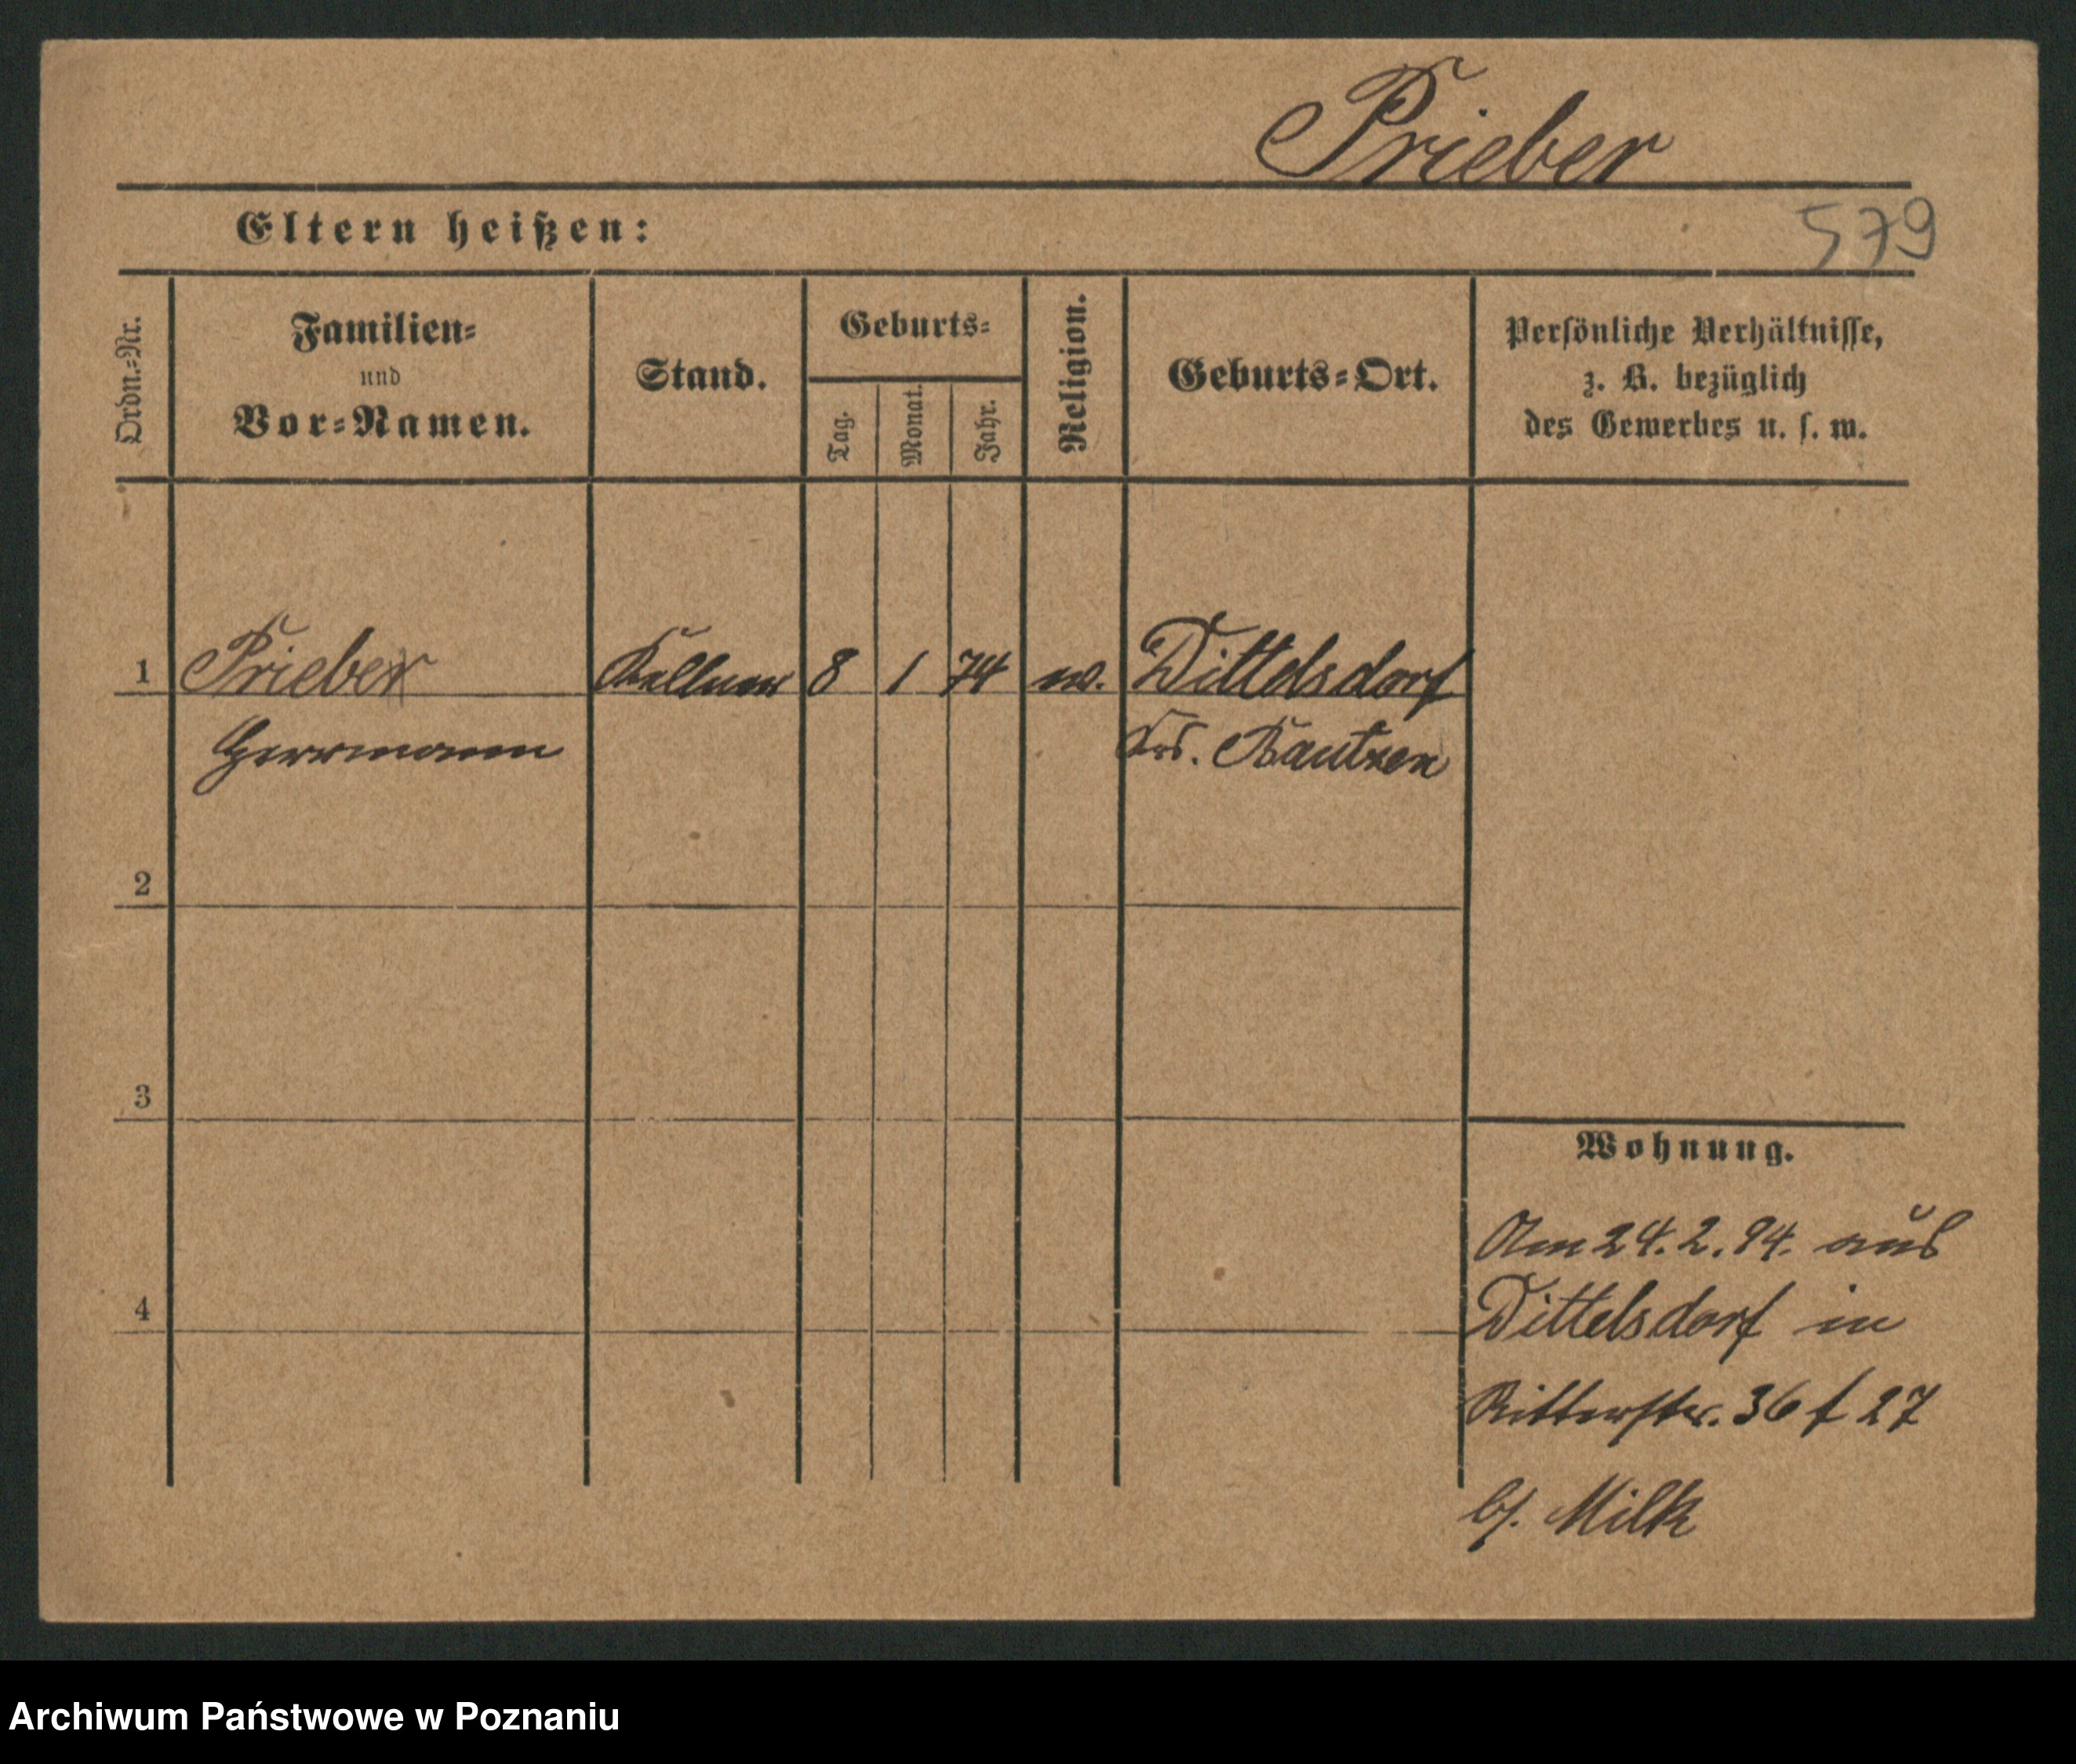 Prieber
Eltern heißen:
579
Ordn.=Nr.
Familien=
und
Vor=Namen.
Stand.
Geburts=
Tag.
Monat.
Jahr.
Religion.
Geburts=Ort.
Persönliche Verhältnisse,
z. B. bezüglich
des Gewerbes u. s. w.
1 Prieber Kellner 8 1 74 ev. Dittelsdorf
Herrmann Krs. Bautzen
2
3
Wohnung.
Am 24.2.94. aus
4
Dittelsdorf in
Ritterstr. 36 f 27
b/. Milk
Archiwum Państwowe w Poznaniu